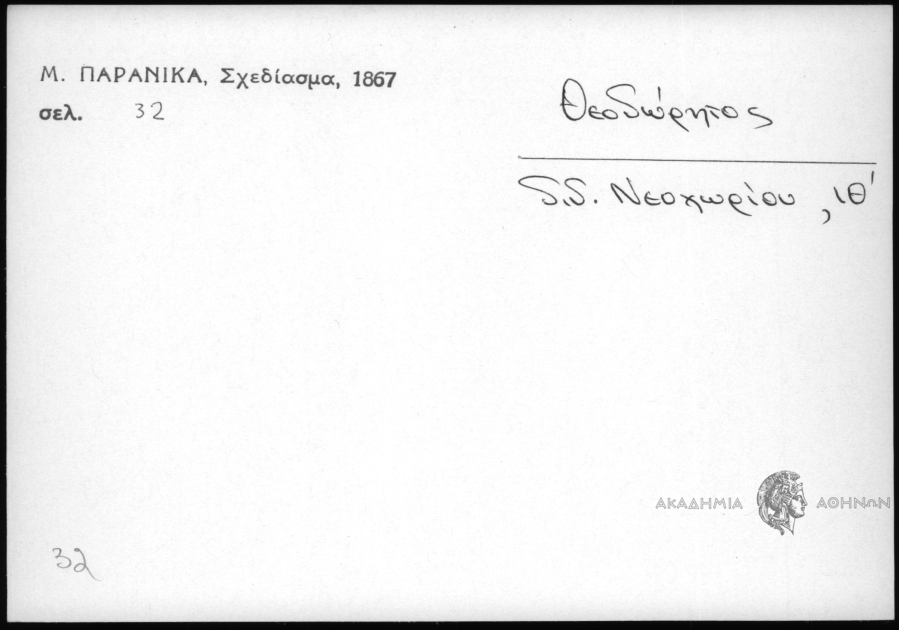 Μ. ΠΑΡΑΝΙΚΑ, Σχεδίασμα, 1867
σελ. 32
Θεοδώρητος
δ.δ. Νεοχωρίου, ιθ'
ΑΚΑΔΗΜΙΑ ΑΘΗΝΩΝ
32